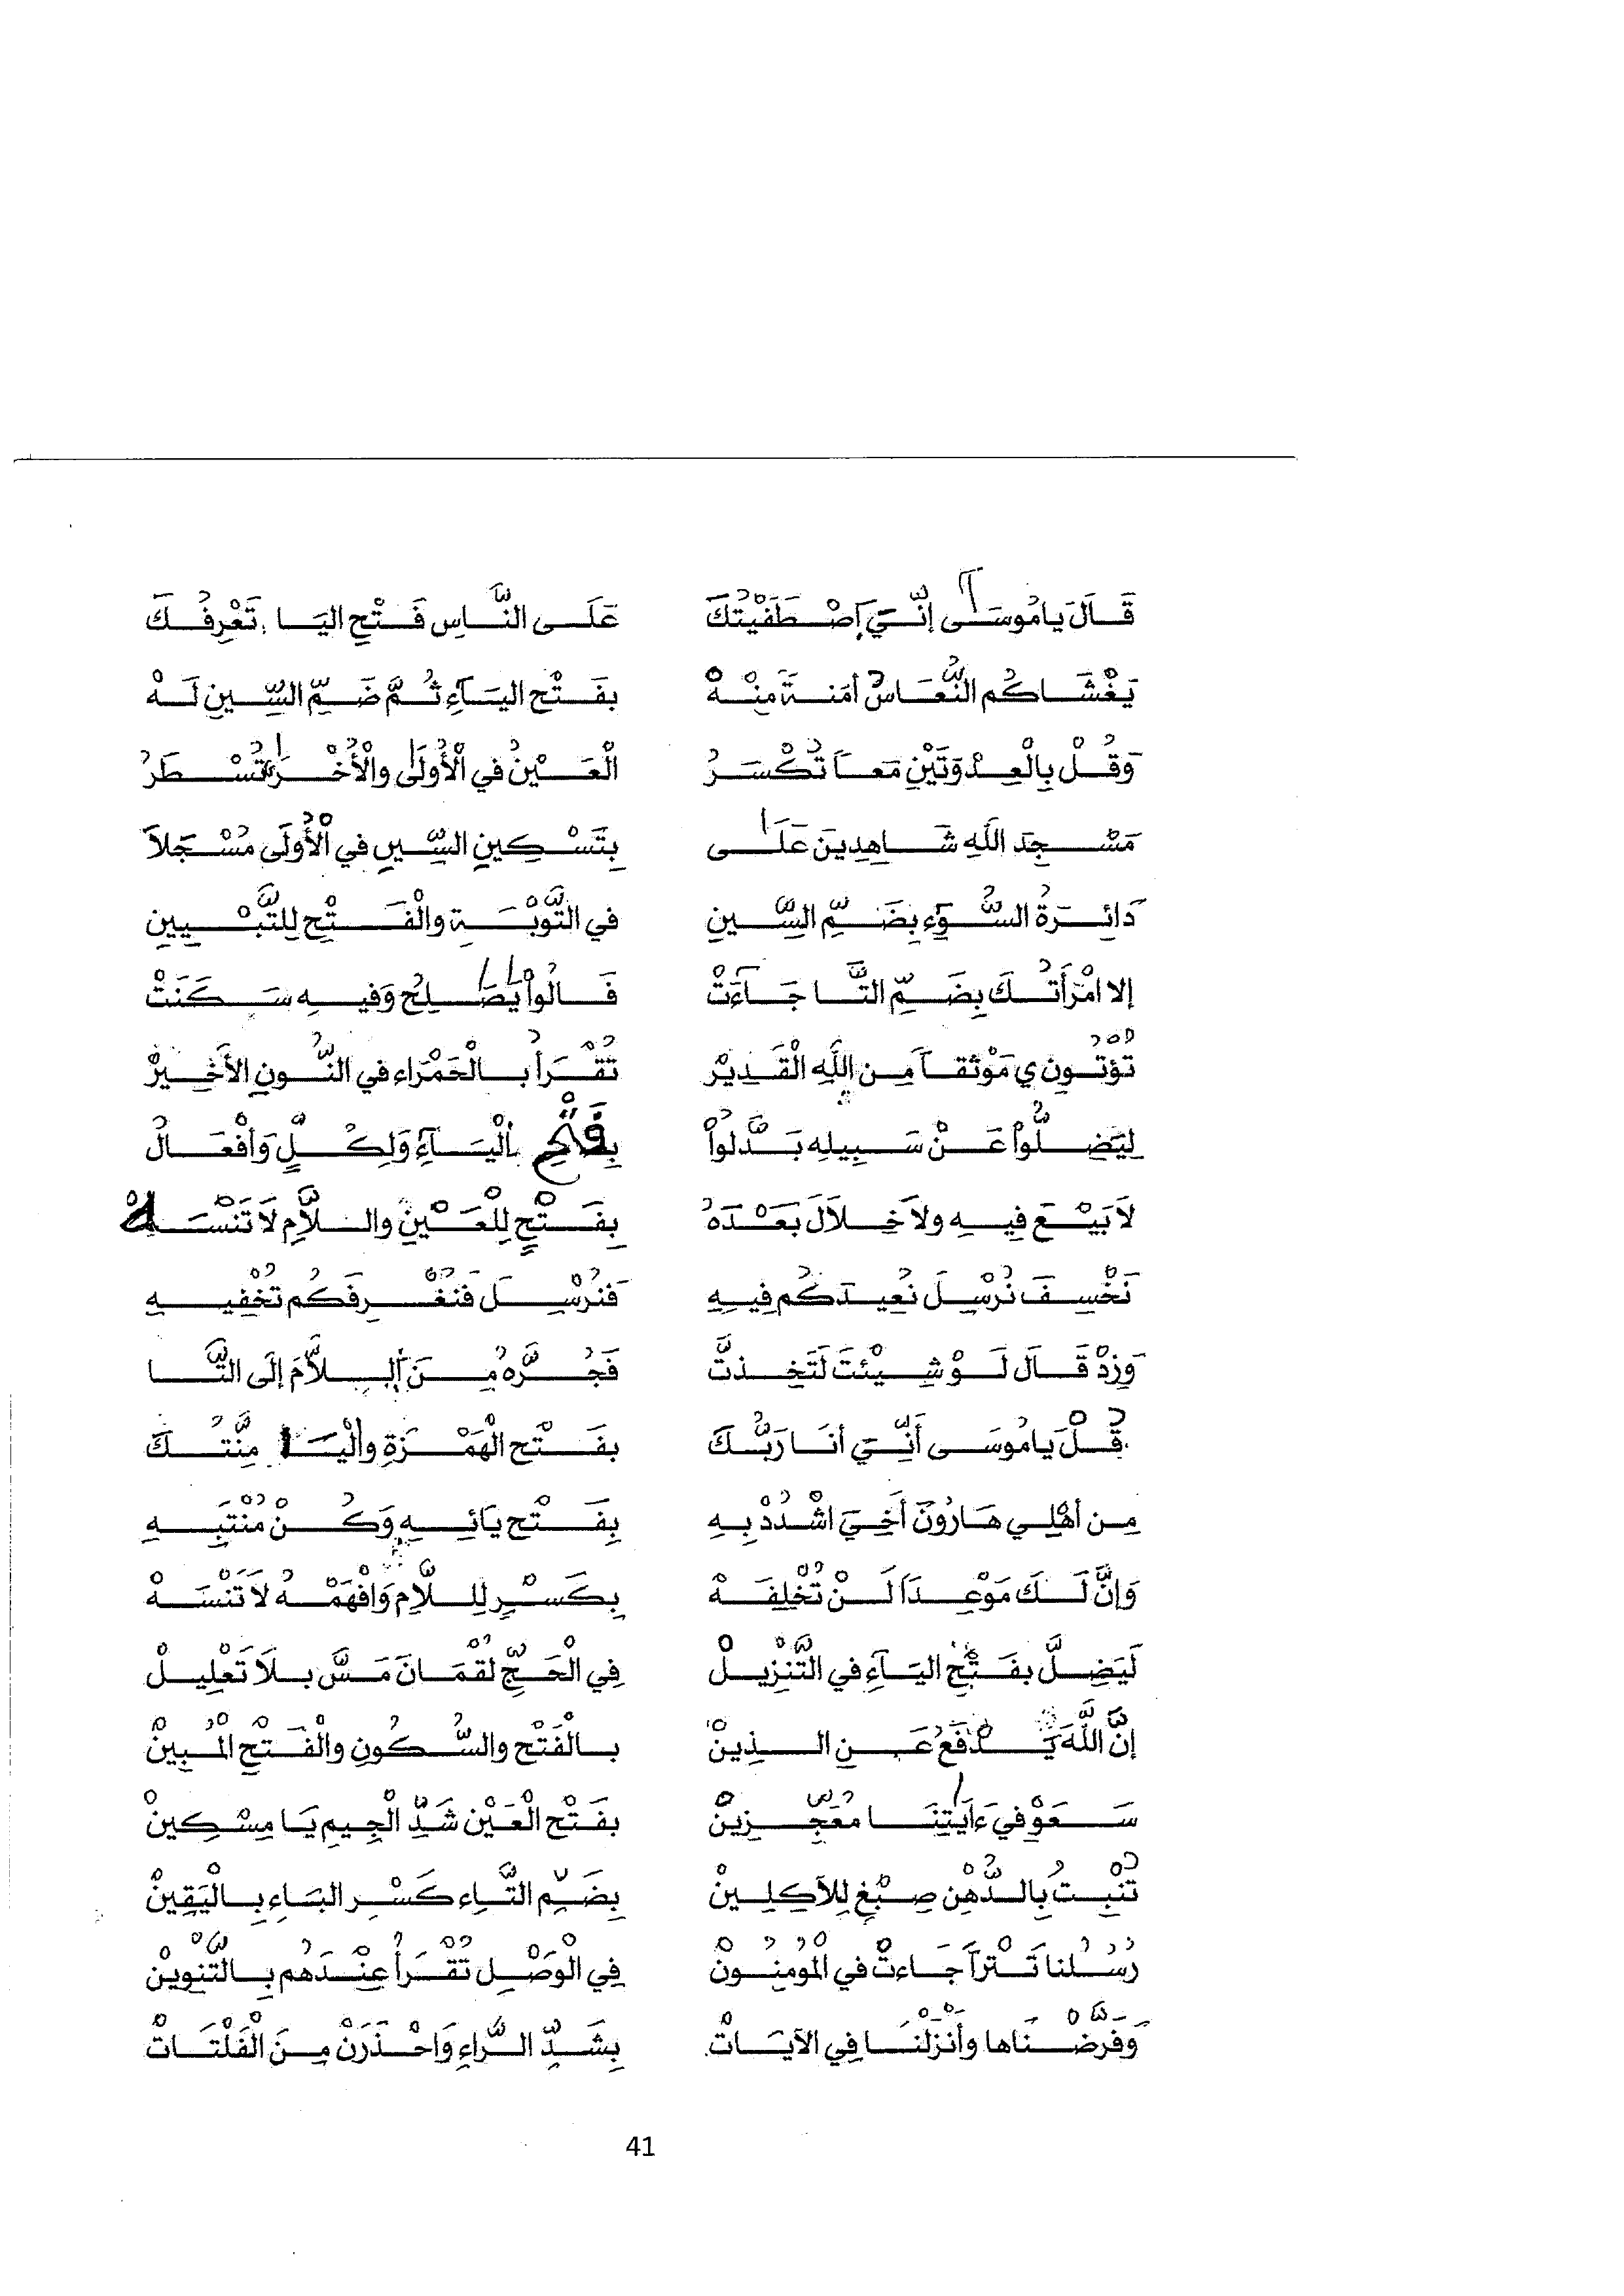 قَالَ يَامُوسَى إِنِّيَ اِصْطَفَيْتُكَ عَلَى النَّاسِ فَتْحِ اليَا تَعْرِفُكَ
يَغْشَاكُم النُّعَاسُ أمَنَةً مِنْهْ بفَتْح اليَآءِ ثُمَّ ضَمِّ السِّينِ لَهْ
وَقُلْ بِالْعِدْوَتَيْنِ مَعاً تُكْسَرُ الْعَيْنُ في الْأُولَى والْأُخْرَى تُسْطَرُ
مَسْجِدَ اللَّهِ شَاهِدِينَ عَلَى بِتَسْكِينِ السِّينِ في الْأُولَى مُسْجَلاَ
دَائِرَةُ السُّوَءِ بِضَمِّ السِّينِ في التَّوْبَةِ والْفَتْحِ لِلتَّبْيِينِ
إلا امْرَأَتُكَ بِضَمِّ التَّا جَآءَتْ قَالُواْ يَصَّلِحُ وَفِيهِ سَكَنَتْ
تُؤْتُونِ ي مَوْثقاً مِن اللَّهِ الْقَدِيرْ تُقْرَأ بالْحَمْرَاء في النُّونِ الأَخِيرْ
لِيَضِلُّواْ عَنْ سَبِيلِه بَدَّلُواْ بِفَتْحِ الْيَآءِ وَلِكُلٍّ وَأفْعَالُ
لاَ بَيْعَ فِيهِ ولاَ خِلاَلَ بَعْدَهُ بِفَتْحٍ لِلْعَيْنِ واللاَّمِ لاَ تَنْسَهُ
نَخْسِفَ نُرْسِلَ نُعِيدَكُم فِيهِ فَنُرْسِلَ فَنُغْرِقَكُم تُخْفِيهِ
وَزِدْ قَالَ لَوْ شِيْئتَ لَتَّخِذتَّ فَجُرَّهُ مِنَ اللاَّمَ إلَى التَّا
قُلْ يامُوسَى أَنِّيَ أنَا رَبُّكَ بفَتْح الْهَمْزَةِ والْيَا مِنَّتكَ
مِن أهْلِي هَارُونَ أَخِيَ اشْدُدْ بِهِ بِفَتْح يَائِهِ وَكُنْ مُنْتَبِهِ
وَإنَّ لَكَ مَوْعِدَاً لَنْ تُخْلِفَهْ بِكَسْرٍ لِللاَّمِ وَافْهَمْهُ لاَ تَنْسَهْ
لَيَضِلَّ بفَتْحِ اليَآءِ في التَّنْزِيلْ فِي الْحَجِّ لُقْمَانَ مَسَّ بلاَ تَعْلِيلْ
إنَّ اللَّهَ يَدْفَعُ عَنِ الذِينْ بالْفَتْح والسُّكُونِ والْفَتْحِ الْمُبِينْ
سَعَوْ في ءَايَتِنَا مُعَجِّزِينْ بفَتْح الْعَيْن شَدِّ الْجِيمِ يَا مِسْكِينْ
تُنْبِتُ بِالدُّهْنِ صِبْغٍ لِلآكِلِينْ بِضَمِّ التَّاءِ كَسْرِ البَاءِ بِالْيَقِينْ
رُسُلُنا تَتْراً جَاءتْ في الْمُومِنُونْ فِي الْوَصْلِ تُقْرَأُ عِنْدَهُم بِالتَّنْوِينْ
وَفَرَضْنَاها وأَنْزَلْنَا فِي الآيَاتْ بِشَدِّ الرَّاءِ وَاحْذَرَنْ مِنَ الْفَلْتَاتْ
41